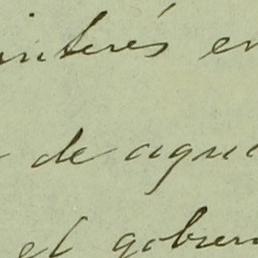 interés en
de aqui
el gobiern